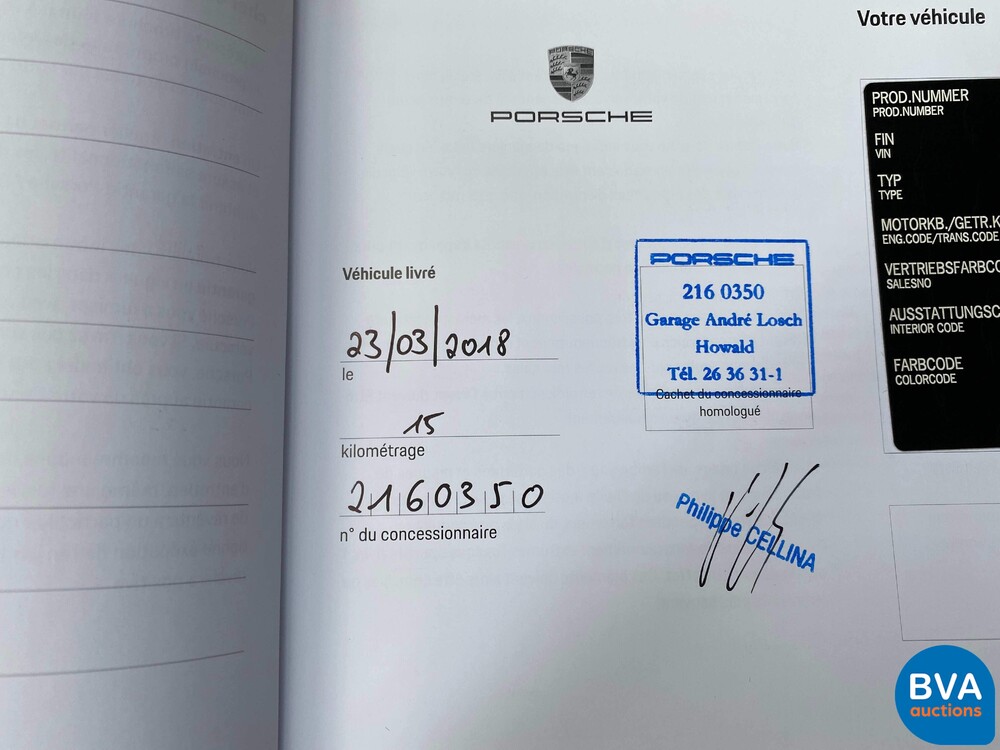 PORSCHE
PORSCHE
Véhicule livré
23/03/2018
le
15
kilométrage
2160350
n° du concessionnaire
PORSCHE
216 0350
Garage André Losch
Howald
Tél. 26 36 31-1
Cachet du concessionnaire
homologué
Philippe CELLINA
Votre véhicule
PROD.NUMMER
PROD.NUMBER
FIN
VIN
TYP
TYPE
MOTORKB./GETR.K
ENG.CODE/TRANS.CODE
VERTRIEBSFARBCO
SALESNO
AUSSTATTUNGSC
INTERIOR CODE
FARBCODE
COLORCODE
BVA
auctions